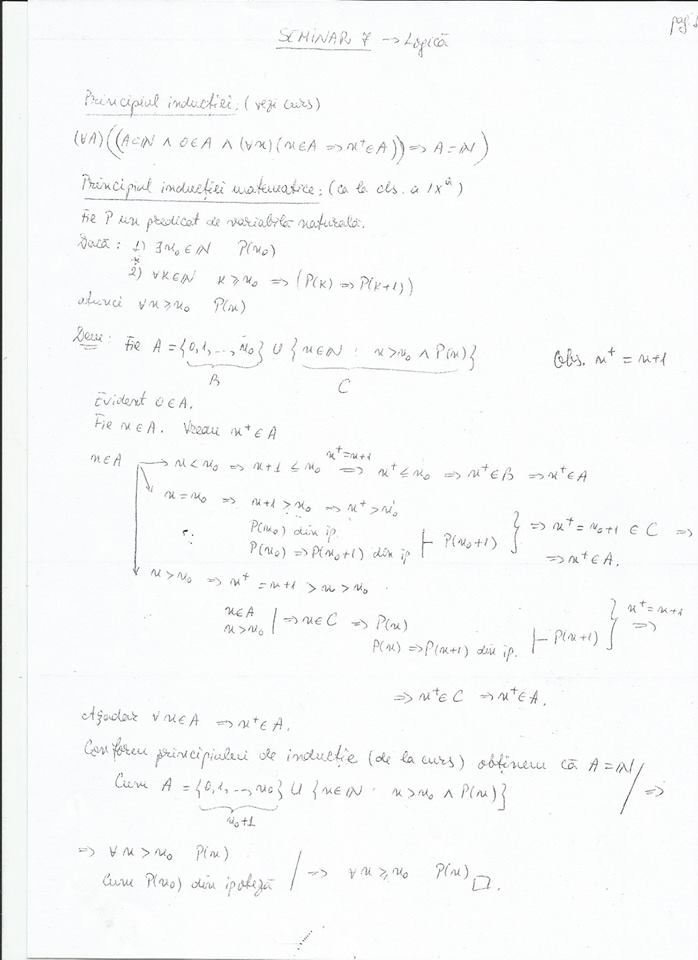 pag 1
SEMINAR 7 → Logică
Principiul inducției: (vezi curs)
(∀A)((A⊂ℕ ∧ 0∈A ∧ (∀n)(n∈A ⇒ n⁺∈A)) ⇒ A=ℕ)
Principiul inducției matematice: (ca la cls. a IXª)
Fie P un predicat de variabilă naturală.
Dacă: 1) ∃n₀∈ℕ P(n₀)
2) ∀k∈ℕ k≥n₀ ⇒ (P(k) ⇒ P(k+1))
atunci ∀n≥n₀ P(n)
Dem: Fie A = {0,1,...,n₀} ∪ {n∈ℕ : n>n₀ ∧ P(n)} Obs. n⁺ = n+1
B C
Evident 0∈A.
Fie n∈A. Vreau n⁺∈A
n∈A → n<n₀ ⇒ n+1 ≤ n₀ ⇒ (n⁺=n+1) n⁺≤n₀ ⇒ n⁺∈B ⇒ n⁺∈A
n=n₀ ⇒ n+1 > n₀ ⇒ n⁺>n₀
P(n₀) din ip.
P(n₀) ⇒ P(n₀+1) din ip ⊢ P(n₀+1) } ⇒ n⁺=n₀+1 ∈ C ⇒
⇒ n⁺∈A.
n>n₀ ⇒ n⁺ = n+1 > n > n₀
n∈A
n>n₀ | ⇒ n∈C ⇒ P(n)
P(n) ⇒ P(n+1) din ip. ⊢ P(n+1) } n⁺=n+1 ⇒
⇒ n⁺∈C ⇒ n⁺∈A.
Așadar ∀n∈A ⇒ n⁺∈A.
Conform principiului de inducție (de la curs) obținem că A=ℕ
Cum A = {0,1,...,n₀} ∪ {n∈ℕ : n>n₀ ∧ P(n)} / ⇒
n₀+1
⇒ ∀n>n₀ P(n)
Cum P(n₀) din ipoteză / ⇒ ∀n≥n₀ P(n) □.